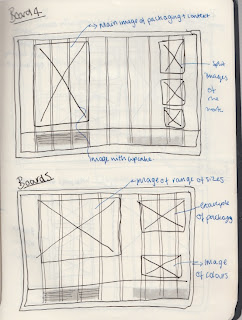 Board 4
Main image of packaging + content
Split
images
of
the
work
image with cupcake
Board 5
image of range of sizes
example
of packagg
Image
of colours